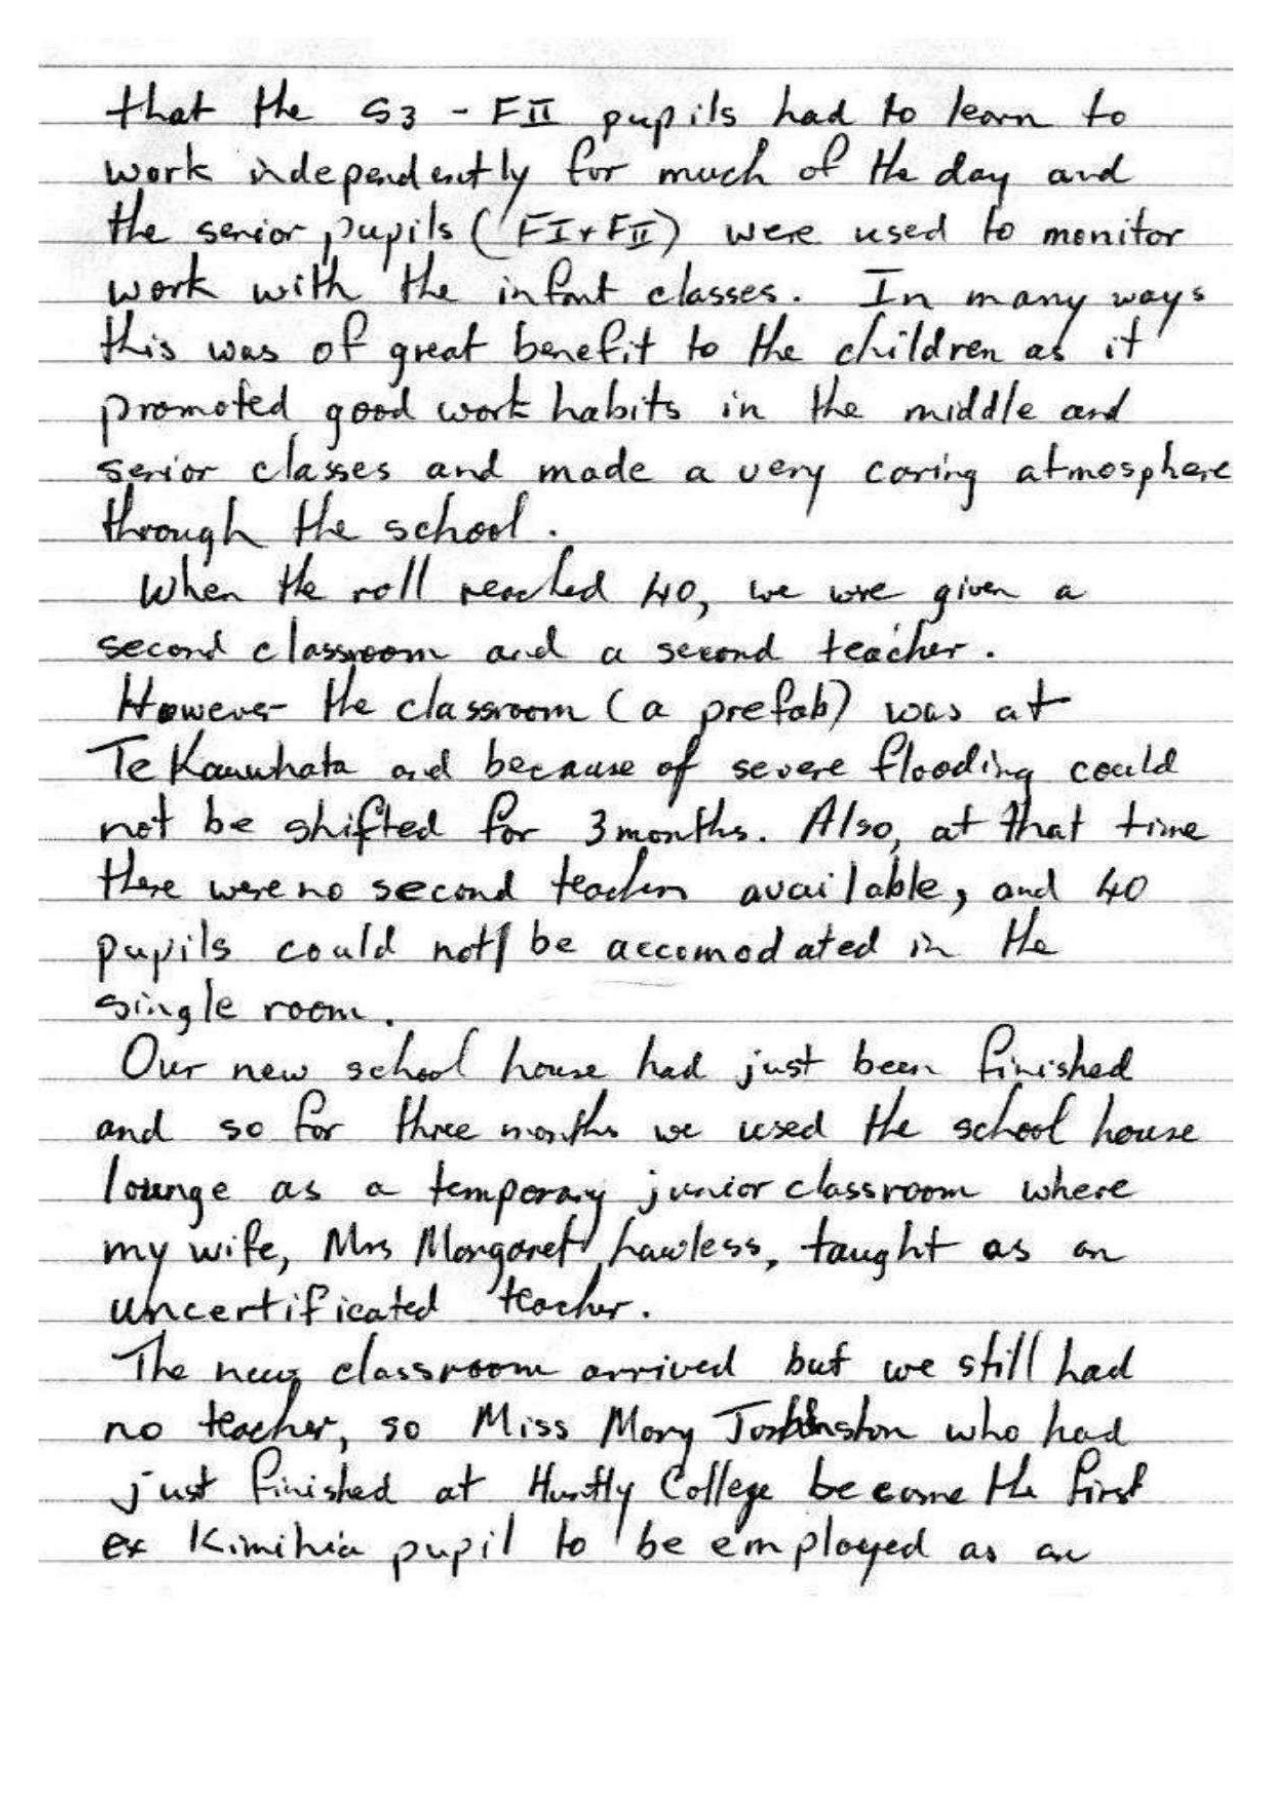 that the S3 - FII pupils had to learn to
work independently for much of the day and
the senior pupils (FI + FII) were used to monitor
work with the infant classes. In many ways
this was of great benefit to the children as it
promoted good work habits in the middle and
senior classes and made a very caring atmosphere
through the school.
When the roll reached 40, we were given a
second classroom and a second teacher.
However the classroom (a prefab) was at
Te Kauwhata and because of severe flooding could
not be shifted for 3 months. Also, at that time
there were no second teachers available, and 40
pupils could not be accomodated in the
single room.
Our new school house had just been finished
and so for three months we used the school house
lounge as a temporary junior classroom where
my wife, Mrs Margaret Lawless, taught as an
uncertificated teacher.
The new classroom arrived but we still had
no teacher, so Miss Mary who had
just finished at Huntly College became the first
ex Kimihia pupil to be employed as an